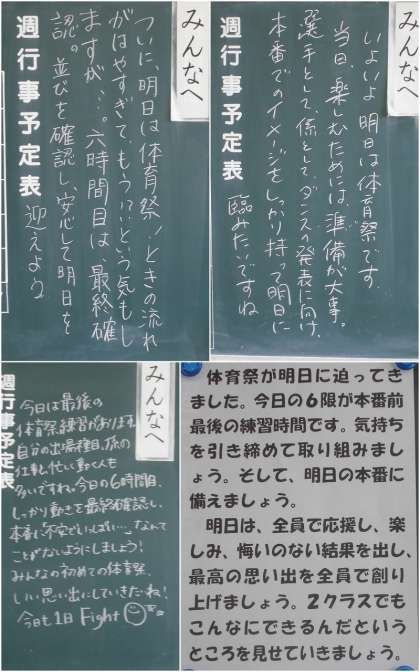 みんなへ
ついに、明日は体育祭!ときの流れ
がはやすぎて、もう!?という気もし
ますが…。六時間目は、最終確
認。並びを確認し、安心して明日を
迎えよう
週行事予定表
みんなへ
いよいよ明日は体育祭です。
当日、楽しむためには、準備が大事。
選手として、係として、ダンスの発表に向け、
本番でのイメージをしっかり持って明日に
臨みたいですね
週行事予定表
みんなへ
今日は最後の
体育祭練習があります。
自分の出場種目、係の
仕事、忙しく動く人も
多いですね。今日の6時間目、
しっかり動きを最終確認し、
本番に「不安でいっぱい…」なんて
ことがないようにしましょう!
みんなの初めての体育祭、
いい思い出にしていきたいね!
今日も1日Fight
週行事予定表
体育祭が明日に迫ってき
ました。今日の6限が本番前
最後の練習時間です。気持ち
を引き締めて取り組みましょ
う。そして、明日の本番に
備えましょう。
明日は、全員で応援し、楽
しみ、悔いのない結果を出し、
最高の思い出を全員で創り
上げましょう。2クラスでも
こんなにできるんだという
ところを見せていきましょう。